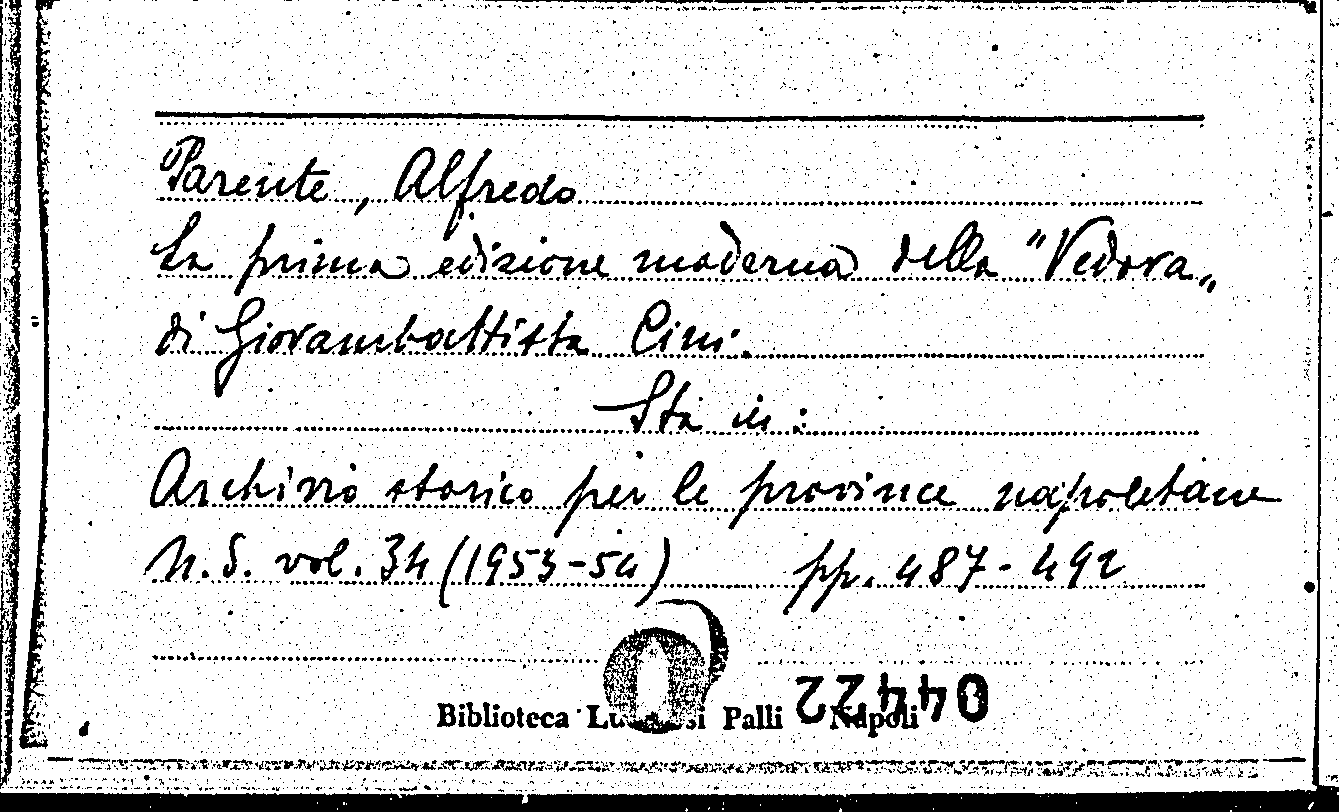 Parente, Alfredo
La prima edizione moderna della "Vedova„
di Giovambattista Cini.
Sta in:
Archivio storico per le province napoletane
N.S. vol. 34 (1953-54) pp. 487-492
04422
Biblioteca Lucchesi Palli Napoli